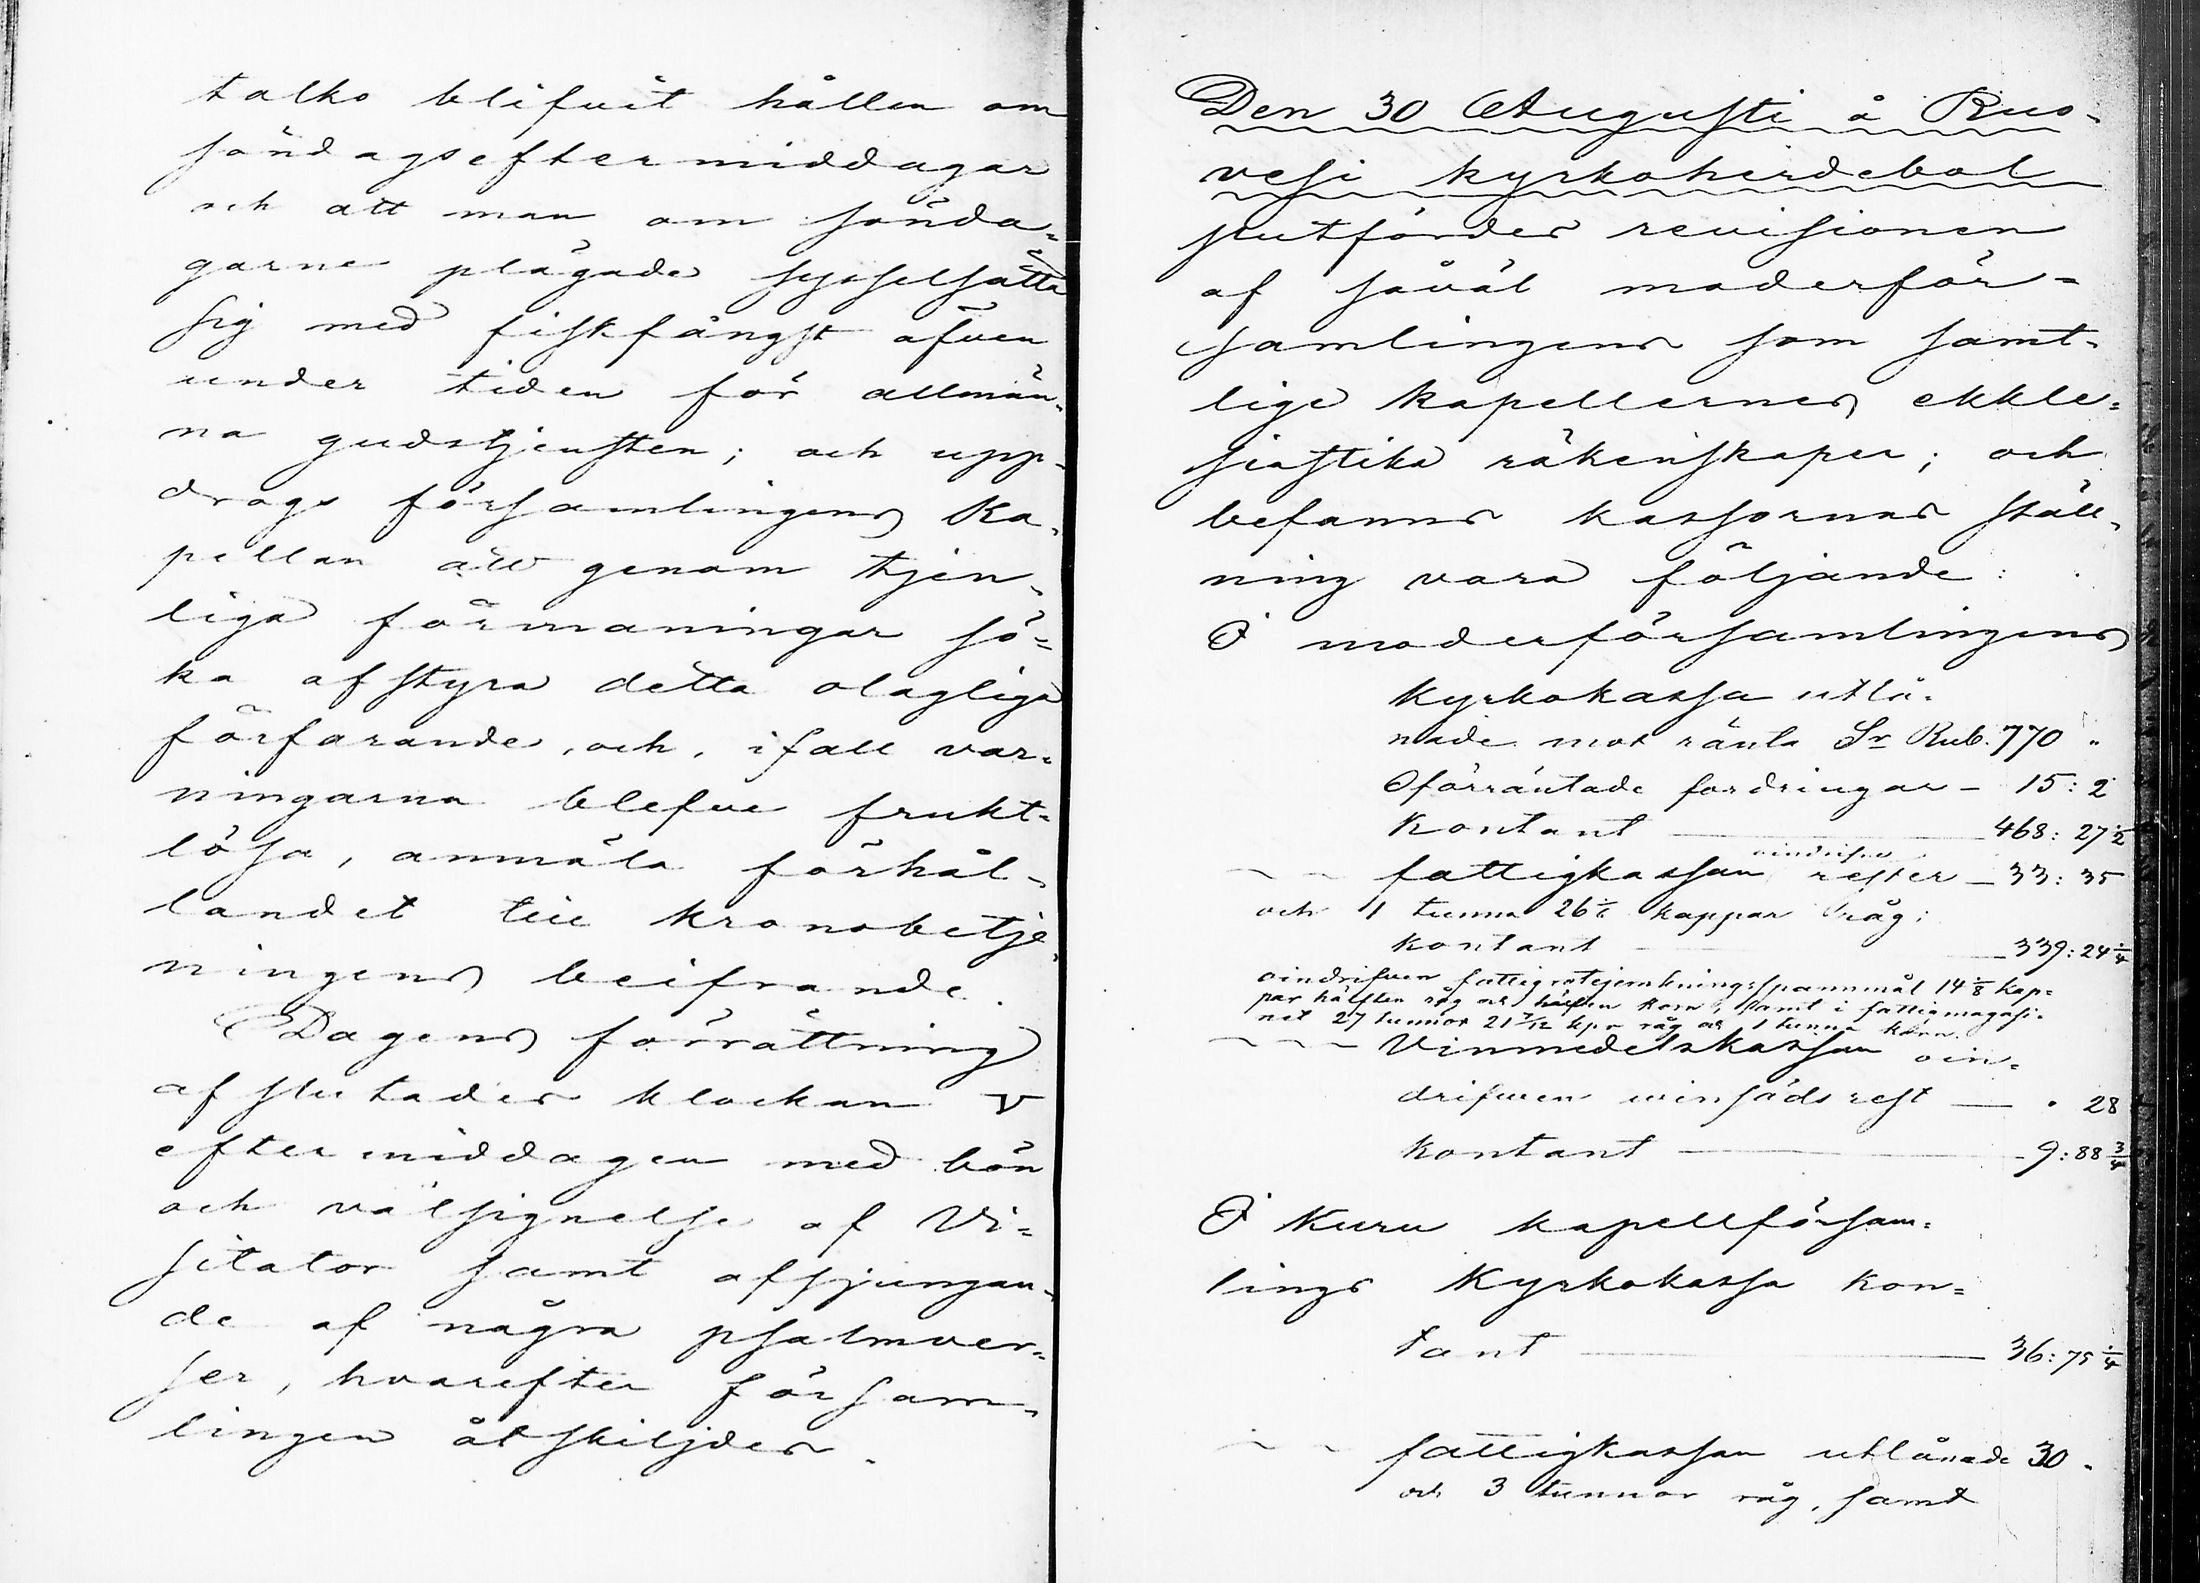 talko blifvit hållen om
söndagseftermiddagar
och att man om sönda=
garne plägade sysselsätta
sig med fiskfångst äfven
under tiden för allmän-
na gudstjensten; och upp-
drogs församlingens Ka-
pellan att genom tjen-
liga förmaningar sö=
ka afstyra detta olagliga
förfarande, och, ifall var-
ningarna blefve frukt-
lösa, anmäla förhål-
landet till kronobetje-
ningens beifrande.
Dagens förrättning
afslutades klockan V
eftermiddagen med bön
och välsignelse af Vi=
sitator samt afsjungan-
de af några psalmver-
ser, hvarefter försam-
lingen åtskiljdes.
Den 30 Augusti å Ruo-
vesi kyrkoherdebol
slutfördes revisionen
af såväl moderför-
samlingens som samt-
lige kapellernes ekkle=
siastika räkenskaper; och
befanns kassornas ställ-
ning vara följande:
I moderförsamlingens
Kyrkokassa utlå-
nade mot ränta Sr Rub. 770 "
Oförräntade fordringar — 15: 2
Kontant — 468: 27 1/2
~ ~ fattigkassan oindrifne rester — 33: 35
och 1 tunna 26 kappar råg;
kontant — 339: 24 1/4
oindrifven fattigrotejemkningsspannmål 14 1/8 kap=
par hälften råg och hälften korn, samt i fattigmagasi-
net 27 tunnor 21 7/12 kpr råg och 1 tunna korn.
~ ~ ~ Vinmedelskassan oin-
drifven vinsäds rest — " 28
kontant — 9: 88 3/4
I Kuru kapellförsam=
lings Kyrkokassa kon=
tant — 36: 75 1/4
~ ~ fattigkassan utlånade 30 -
och 3 tunnor råg, samt